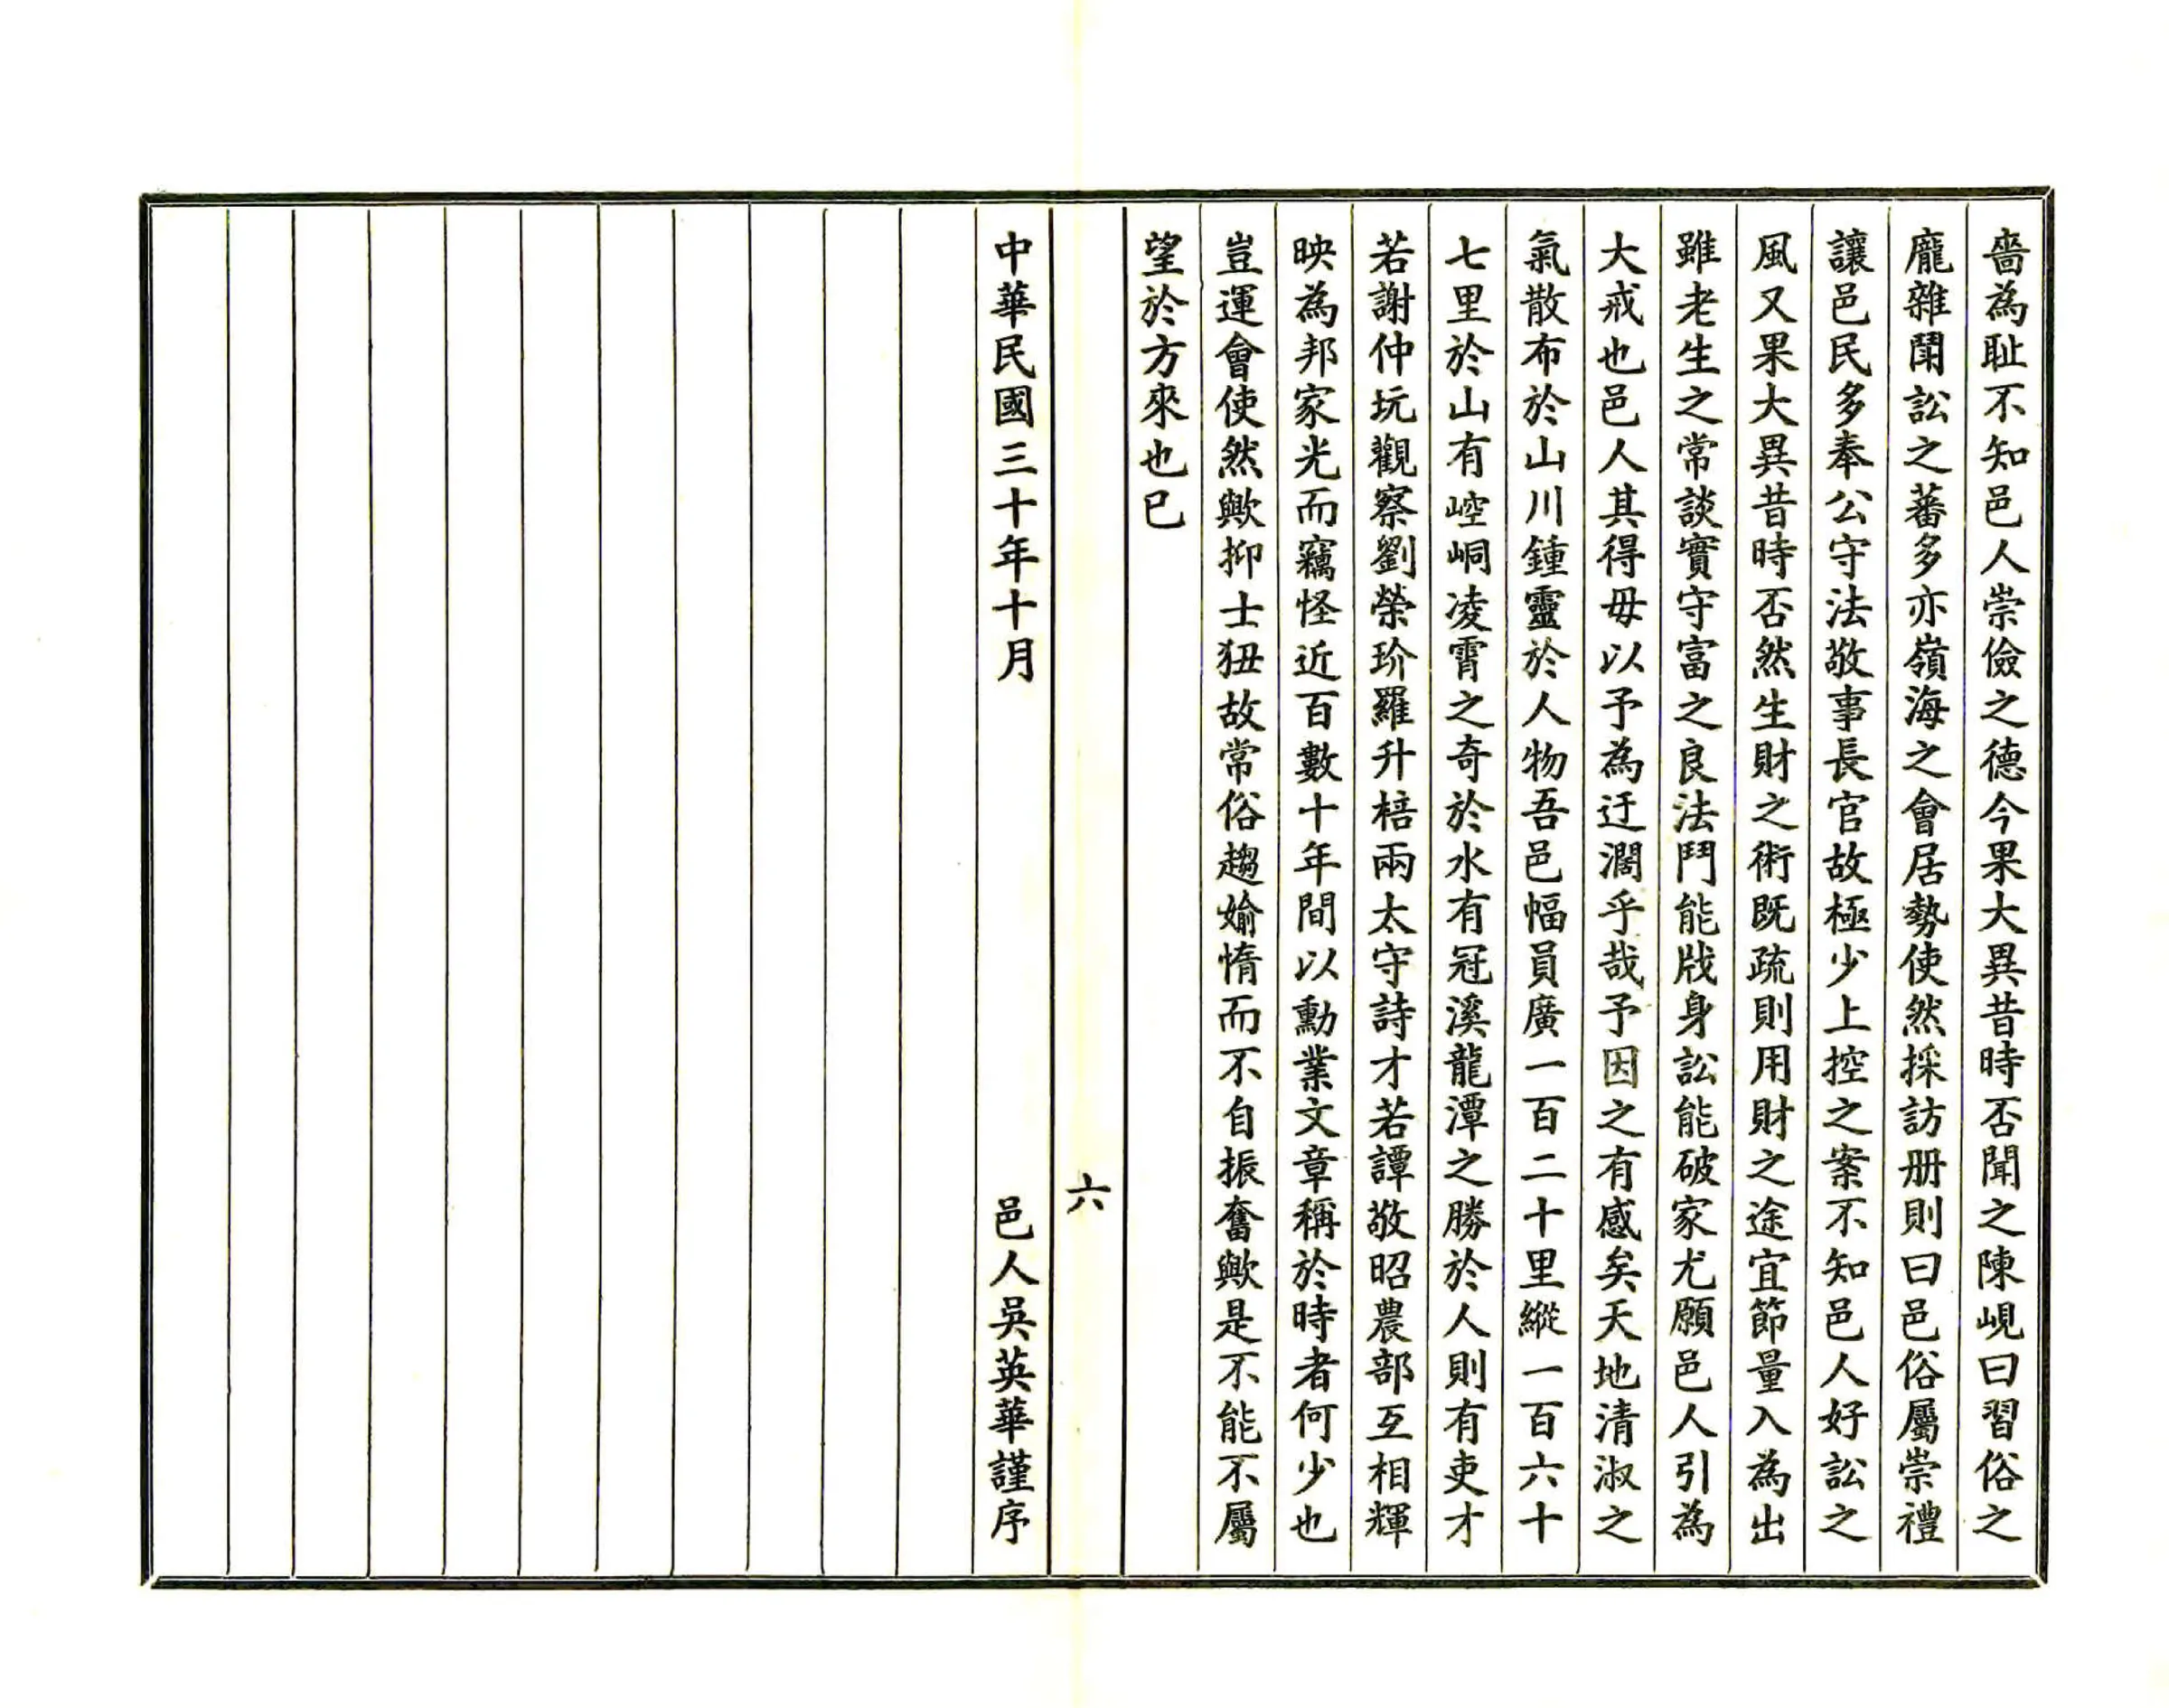 嗇為耻不知邑人崇儉之德今果大異昔時否聞之陳峴曰習俗之
龐雜鬭訟之蕃多亦嶺海之會居勢使然採訪册則曰邑俗屬崇禮
讓邑民多奉公守法敬事長官故極少上控之案不知邑人好訟之
風又果大異昔時否然生財之術既疏則用財之途宜節量入為出
雖老生之常談實守富之良法鬥能戕身訟能破家尤願邑人引為
大戒也邑人其得毋以予為迂濶乎哉予因之有感矣天地清淑之
氣散布於山川鍾靈於人物吾邑幅員廣一百二十里縱一百六十
七里於山有崆峒凌霄之奇於水有冠溪龍潭之勝於人則有吏才
若謝仲玩觀察劉榮玠羅升棓兩太守詩才若譚敬昭農部互相輝
映為邦家光而竊怪近百數十年間以勳業文章稱於時者何少也
豈運會使然歟抑士狃故常俗趨媮惰而不自振奮歟是不能不屬
望於方來也已
六
中華民國三十年十月
邑人吳英華謹序